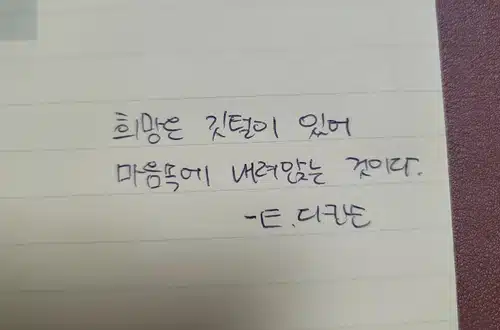 희망은 깃털이 있어
마음속에 내려앉는 것이다.
-E. 디킨슨